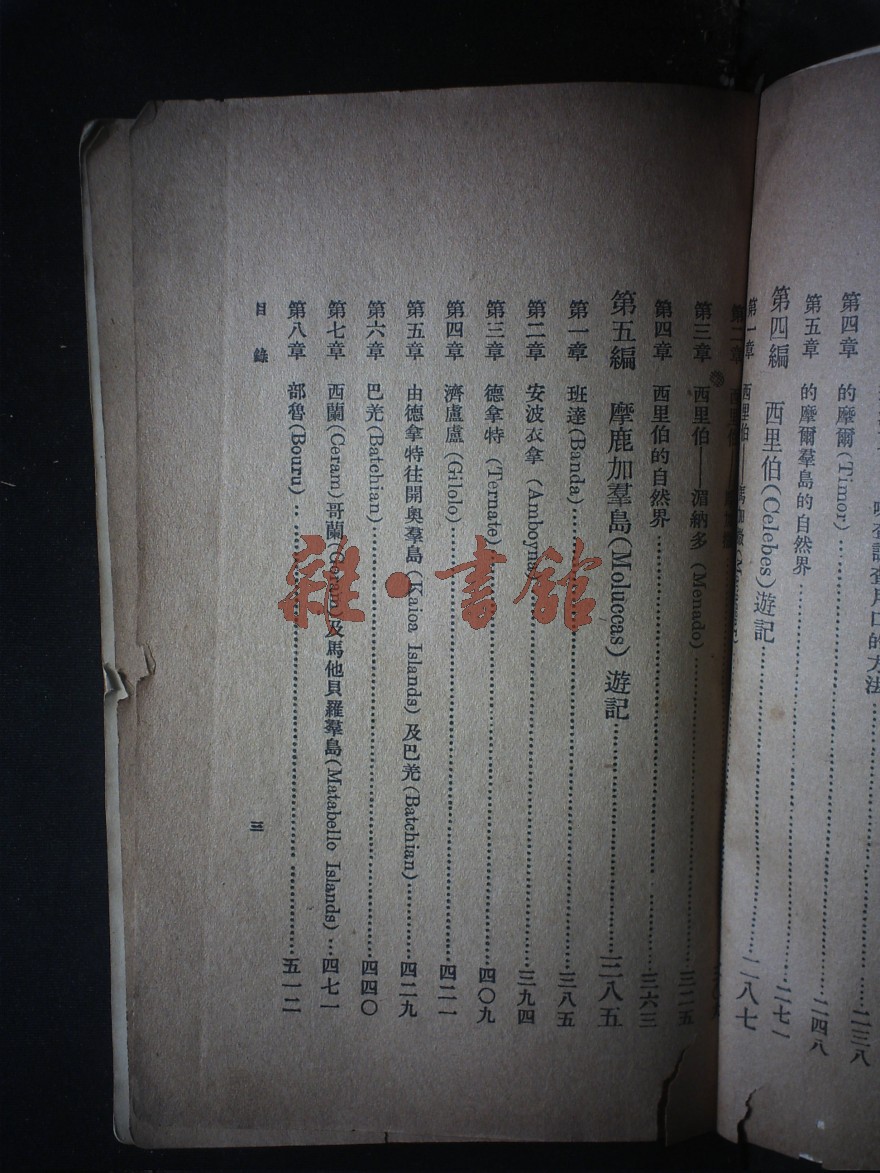 第四章　的摩爾(Timor)……二三八
第五章　的摩爾羣島的自然界……二四八
第四編　西里伯(Celebes)遊記……二七一
第一章　西里伯——……二八七
第二章　西里伯
第三章　西里伯——湄納多(Menado)……三二五
第四章　西里伯的自然界……三六三
第五編　摩鹿加羣島(Moluccas)遊記……三八五
第一章　班達(Banda)……三八五
第二章　安波衣拿(Amboyna)……三九四
第三章　德拿特(Ternate)……四〇九
第四章　濟盧盧(Gilolo)……四二一
第五章　由德拿特往開奧羣島(Kaioa Islands)及巴羌(Batchian)……四二九
第六章　巴羌(Batchian)……四四〇
第七章　西蘭(Ceram)哥蘭(Goram)及馬他貝羅羣島(Matabello Islands)…四七一
第八章　部魯(Bouru)……五一二
目錄
三
雜·書館